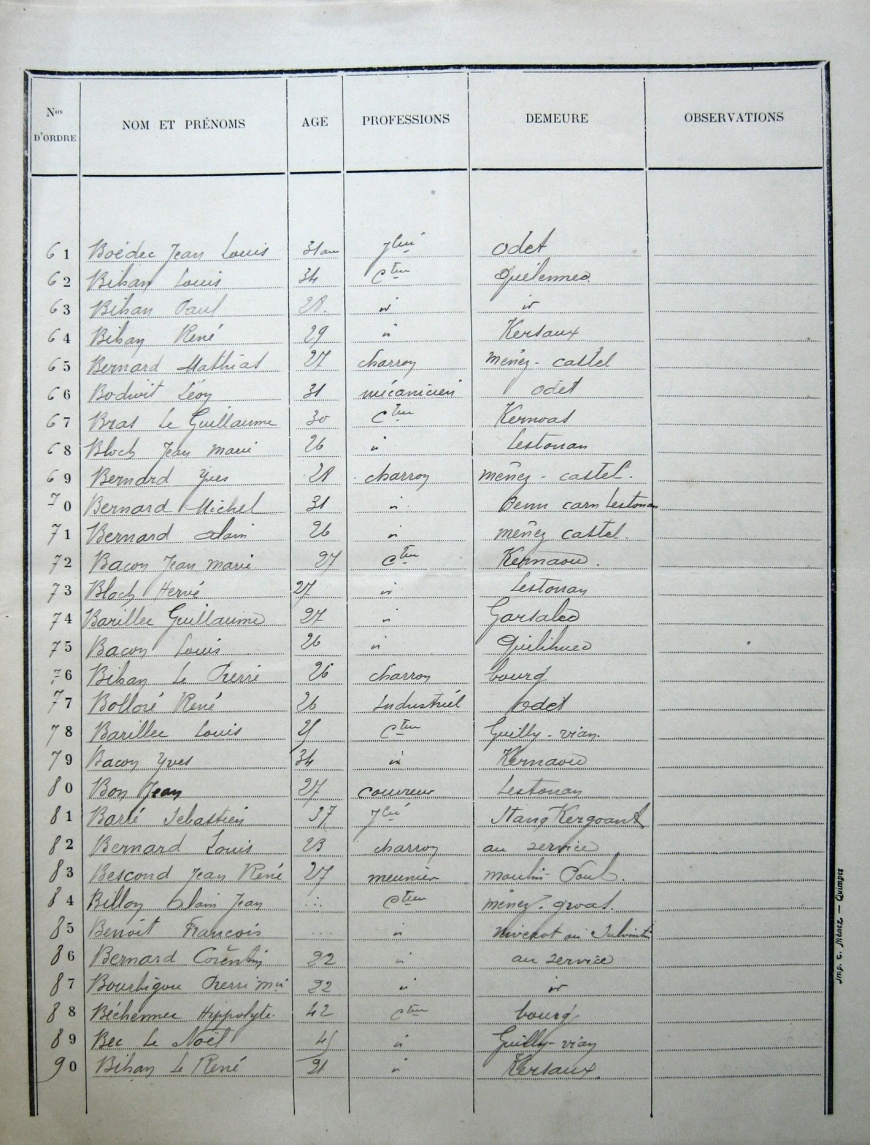 Nos D'ORDRE NOM ET PRÉNOMS AGE PROFESSIONS DEMEURE OBSERVATIONS
61 Boédec Jean Louis 31 an Jlier odet
62 Bihan Louis 34 Cteur Quélennec
63 Bihan Paul 28 id id
64 Bihan René 29 id Kersaux
65 Bernard Mathias 27 charron menez-castel
66 Léon 31 mécanicien odet
67 Bras Le Guillaume 30 Cteur Kervoas
68 Bloch Jean marie 26 id Lestonan
69 Bernard Yves 28 charron menez-castel.
70 Bernard Michel 31 id Penn carn Lestonan
71 Bernard alain 26 id menez castel.
72 Bacon Jean marie 27 Cteur Kernaou.
73 Bloch Hervé 27 id Lestonan
74 Barillec Guillaume 27 id Garsalec
75 Bacon Louis 26 id Quilihuec
76 Bihan Le Pierre 26 charron bourg
77 Bolloré René 26 Industriel odet
78 Barillec Louis Cteur Guilly-vian.
79 Bacon Yves 34 id Kernaou
80 Bon Jean 27 couvreur Lestonan
81 Barré Sébastien 37 Jlier Stang Kergoant
82 Bernard Louis 23 charron au service
83 Bescond Jean René 27 meunier moulin-Paul.
84 Billon alain Jean Cteur menez-groas.
85 Benoit François id
86 Bernard Corentin 22 id au service
87 Boustigou Pierre mie 22 id id
88 Béchennec Hippolyte 42 Cteur bourg.
89 Bec Le Noël id Guilly-vian
90 Bihan Le René 21 id Kersaux.
Imp. C. Ménez — Quimper